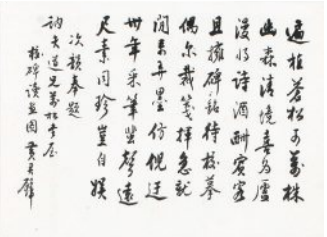 遍植蒼松可萬株
幽森清境喜為廬
漫將詩酒酬賓客
且擁碑銘待校摹
偶尔裁箋揮急就
閒來弄墨仿倪迂
卅年采筆蜚聲遠
尺素同珍豈自娛
次韻奉題
道兄萬松書屋
校碑讀畫圖 黃君璧